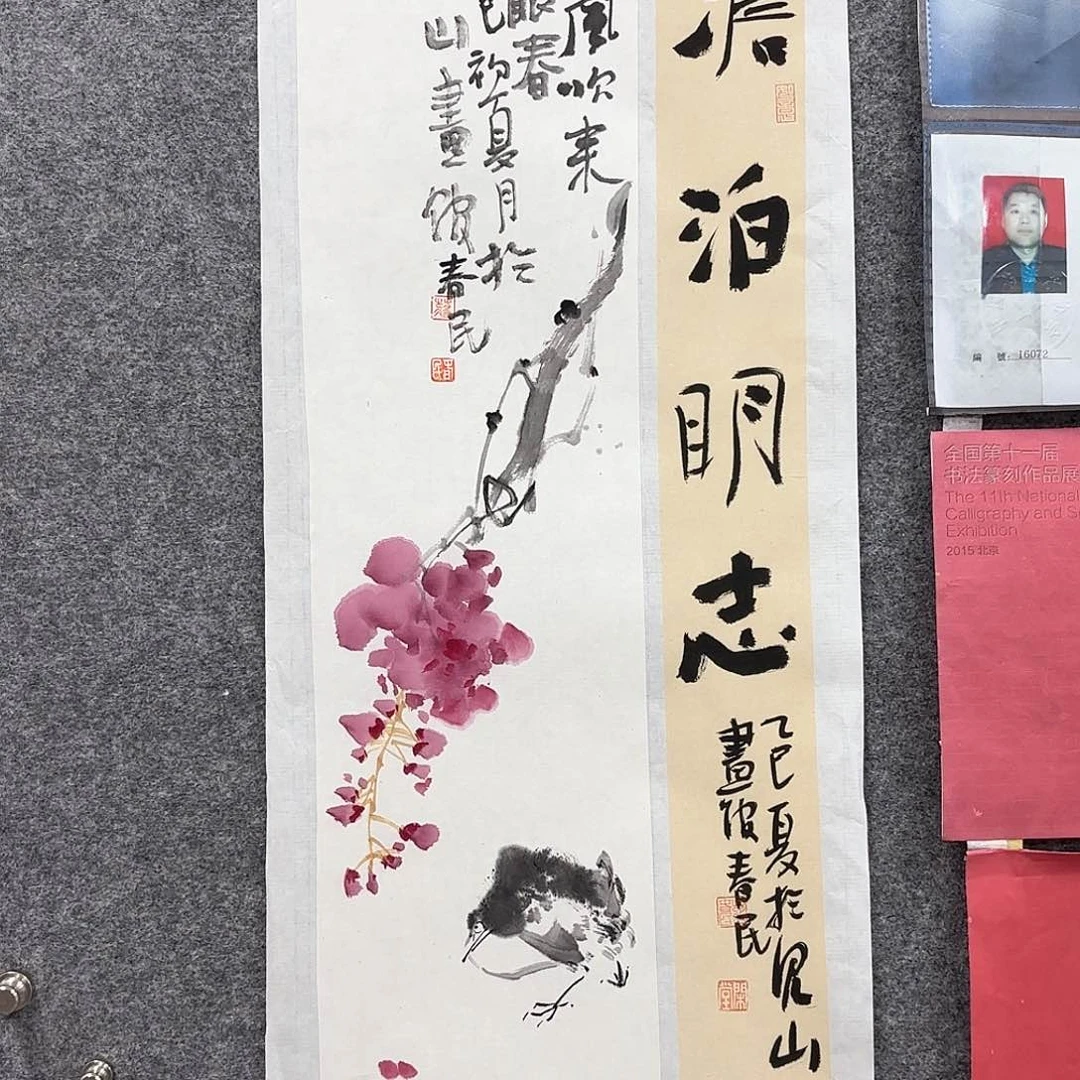 風吹来
眼春
巳初夏月於
山畫館春民
澹泊明志
乙巳夏於見山
畫館春民
編 號: 16072
全国第十一届
书法篆刻作品展
The 11th National
Calligraphy and S
Exhibition
2015 北京